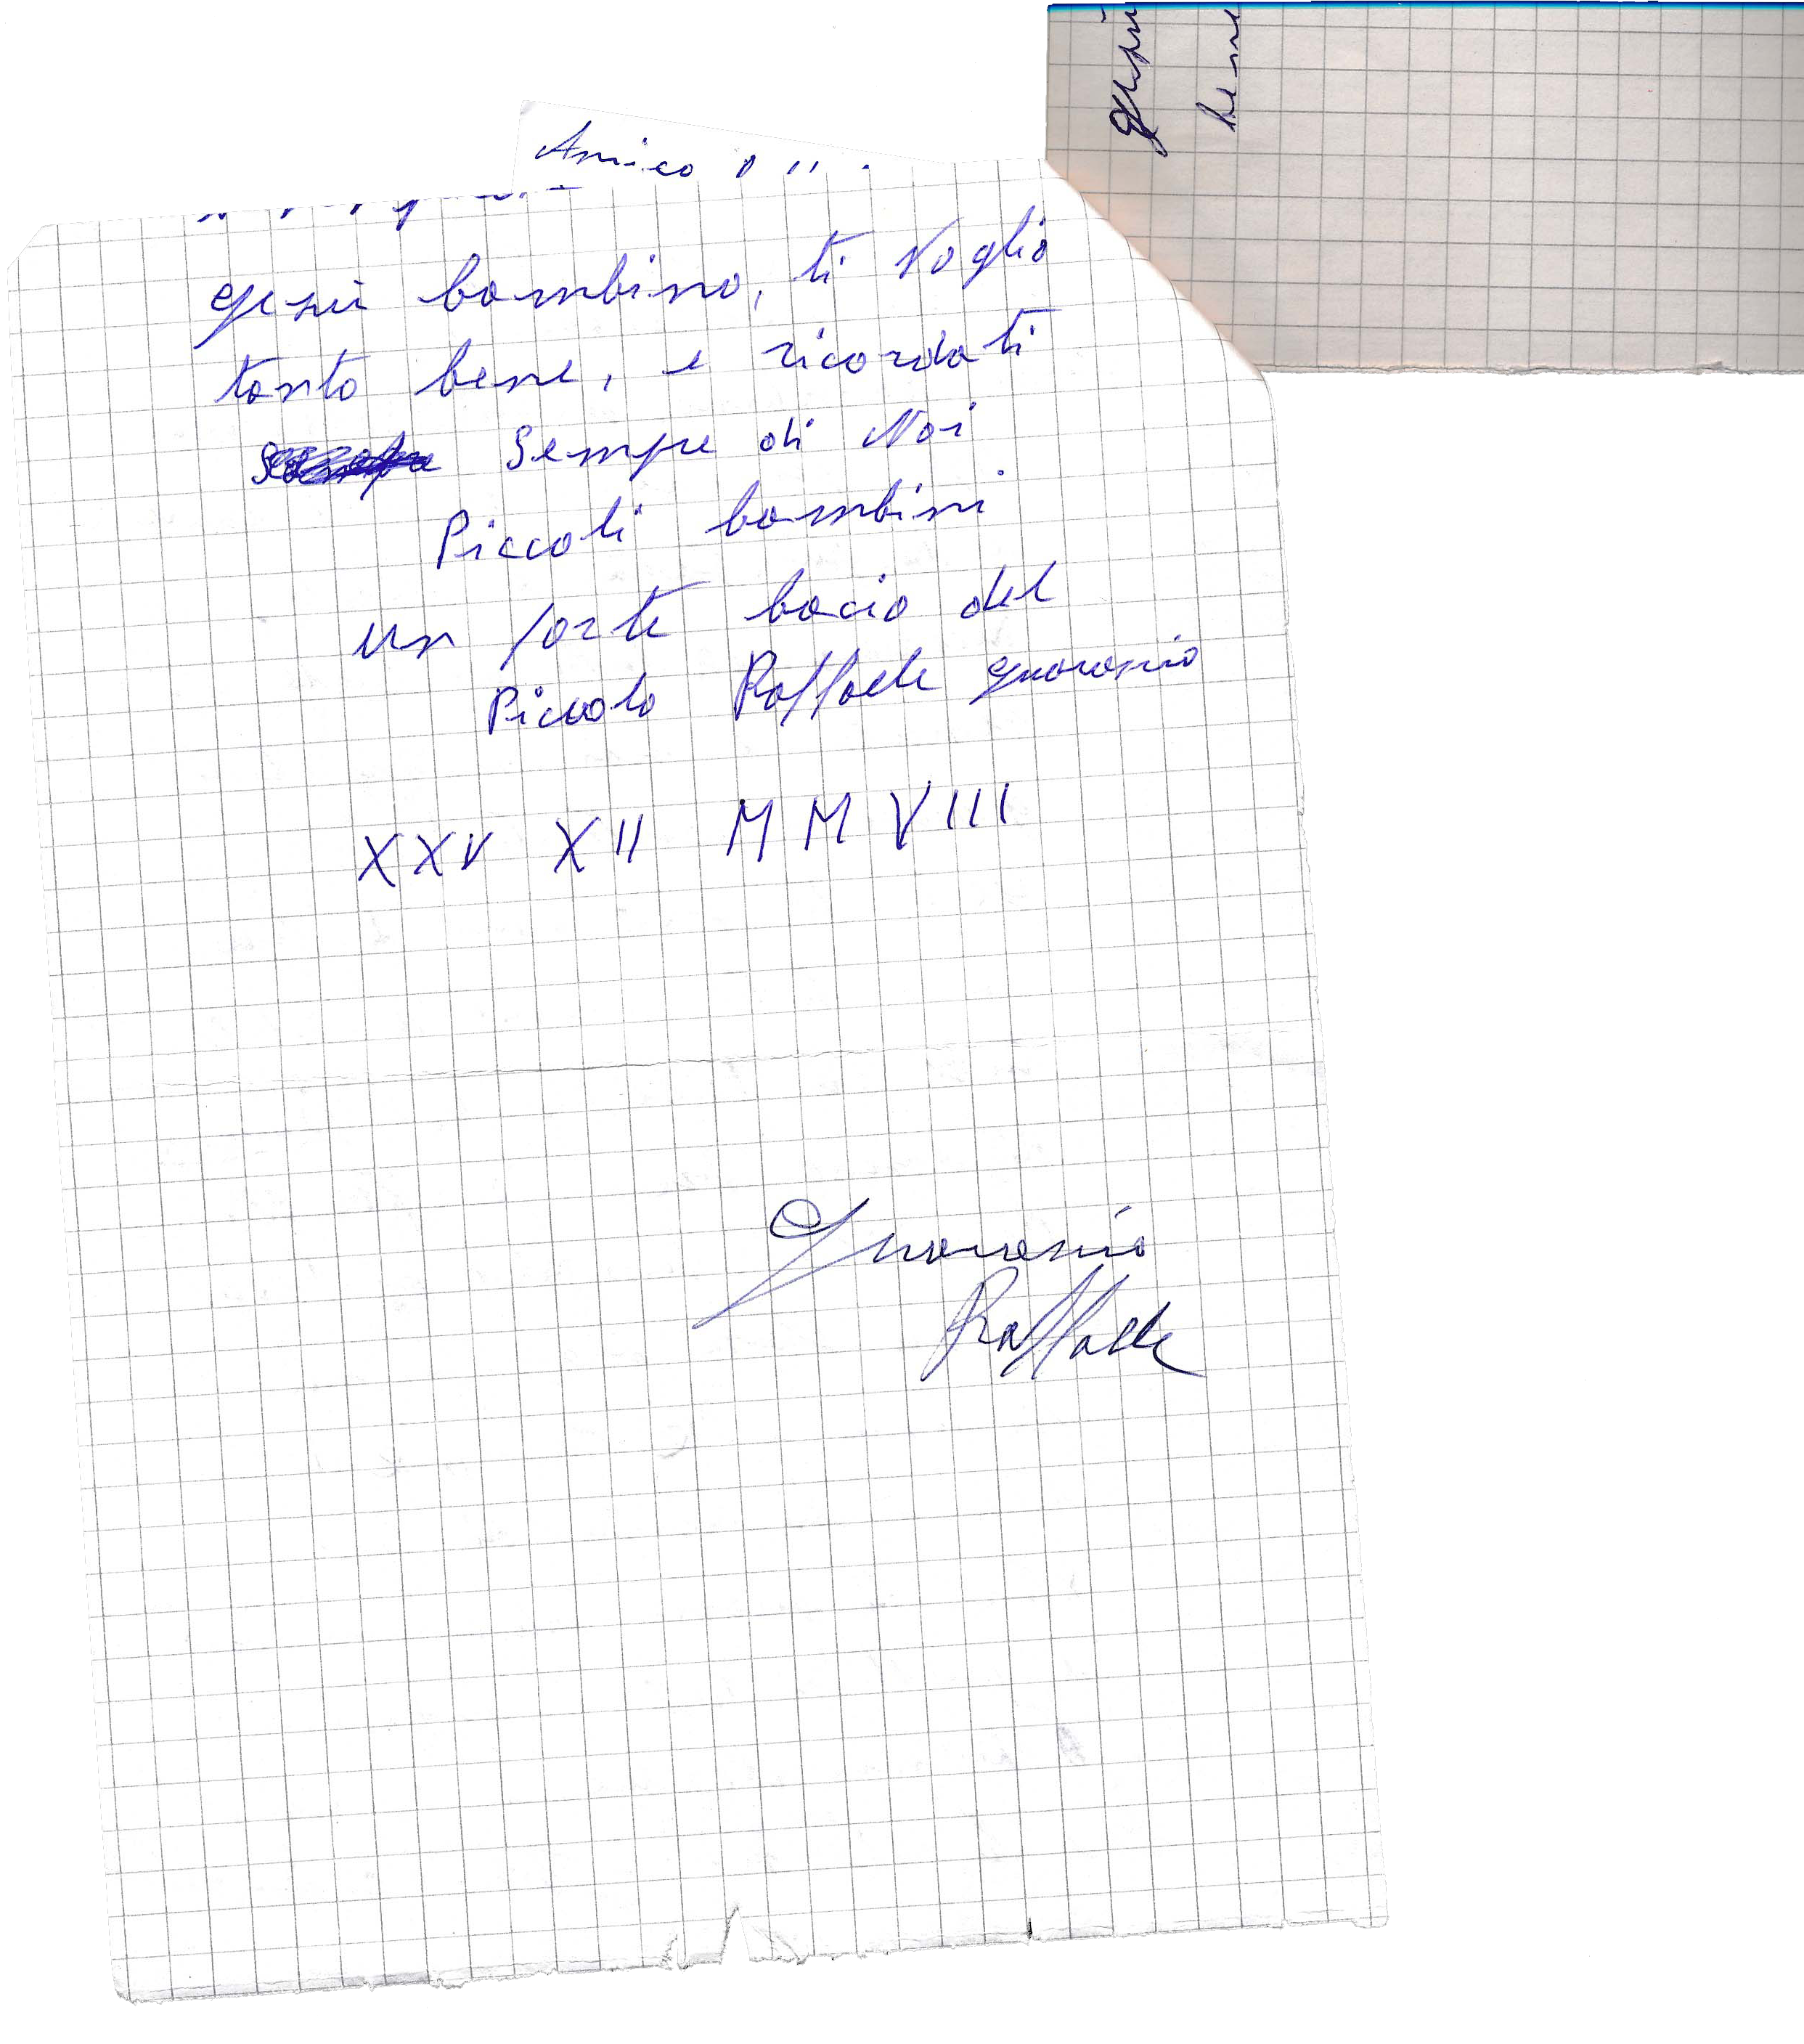 Amico
Gesù bambino, ti Voglio
tanto bene, e ricordati
Sempre di Noi
Piccoli bambini
un forte bacio del
Piccolo Raffaele Guarasio
XXV XII MMVIII
Raffaele